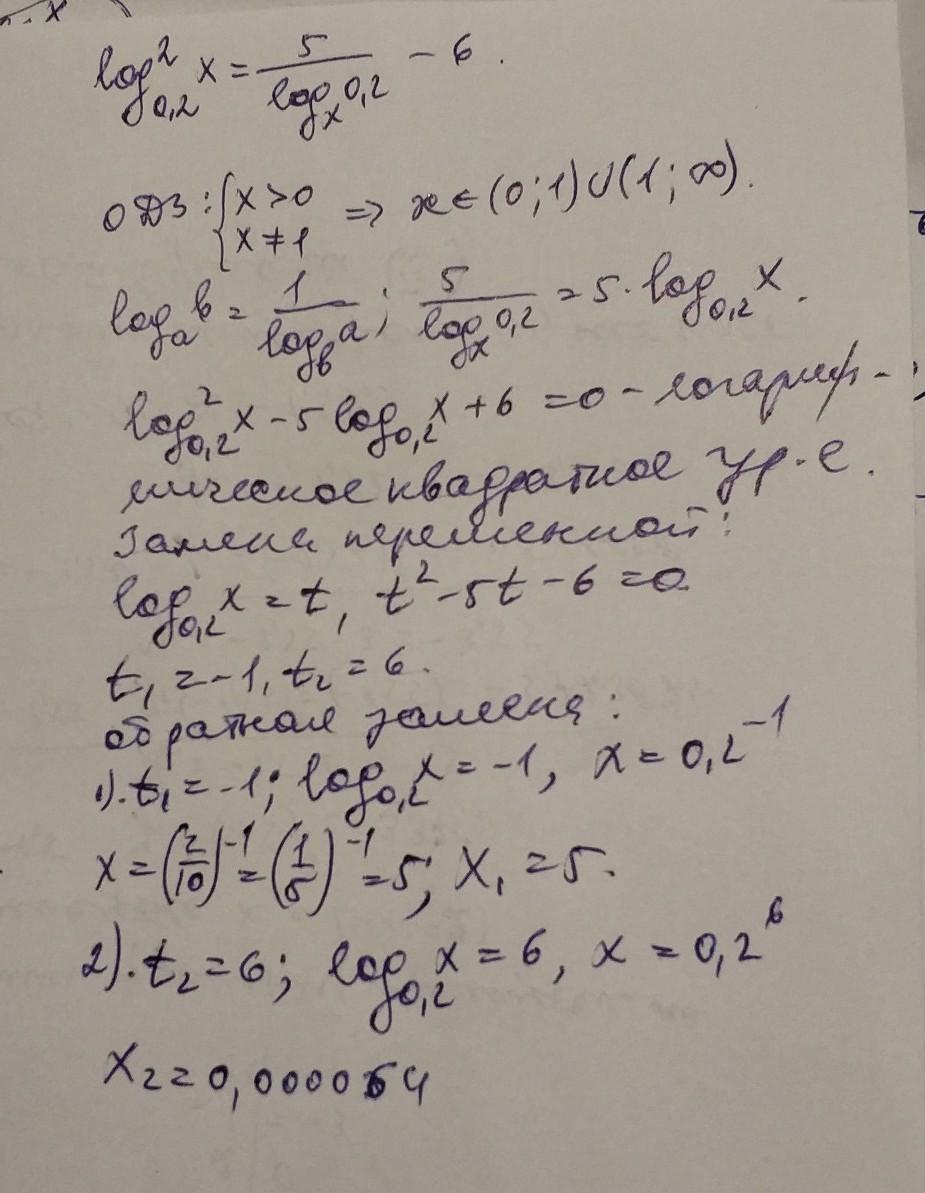 log²₀,₂ x = 5/logₓ0,2 - 6.
ОДЗ: {x>0 x≠1 => x∈(0;1)∪(1;∞).
logₐb = 1/log_b a; 5/logₓ0,2 = 5·log₀,₂x.
log²₀,₂x - 5log₀,₂x + 6 = 0 - логариф-
мическое квадратное ур-е.
Замена переменной:
log₀,₂x = t, t² - 5t - 6 = 0
t₁ = -1, t₂ = 6.
обратная замена:
1). t₁ = -1; log₀,₂x = -1, x = 0,2⁻¹
x = (2/10)⁻¹ = (1/5)⁻¹ = 5; x₁ = 5.
2). t₂ = 6; log₀,₂x = 6, x = 0,2⁶
x₂ = 0,000064